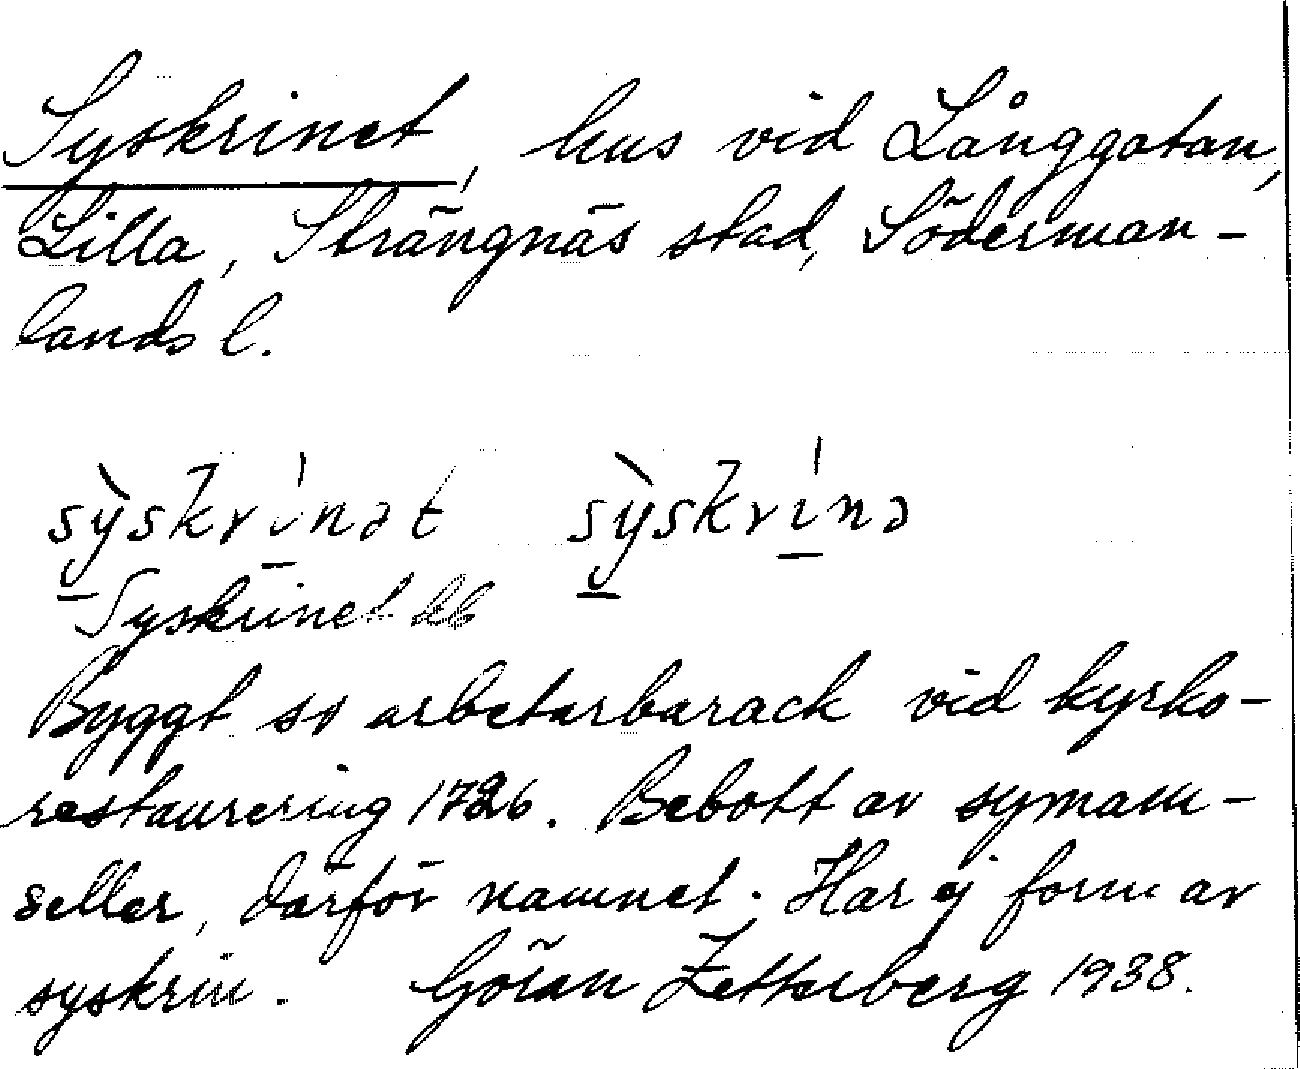 Syskrinet, hus vid Långgatan,
Lilla, Strängnäs stad, Söderman-
lands l.
sỳskrínət sỳskrínə
Syskrinet
Byggt so arbetarbarack vid kyrko-
restaurering 1726. Bebott av symam-
seller, därför namnet. Har ej form av
syskrin. Göran Zetterberg 1938.